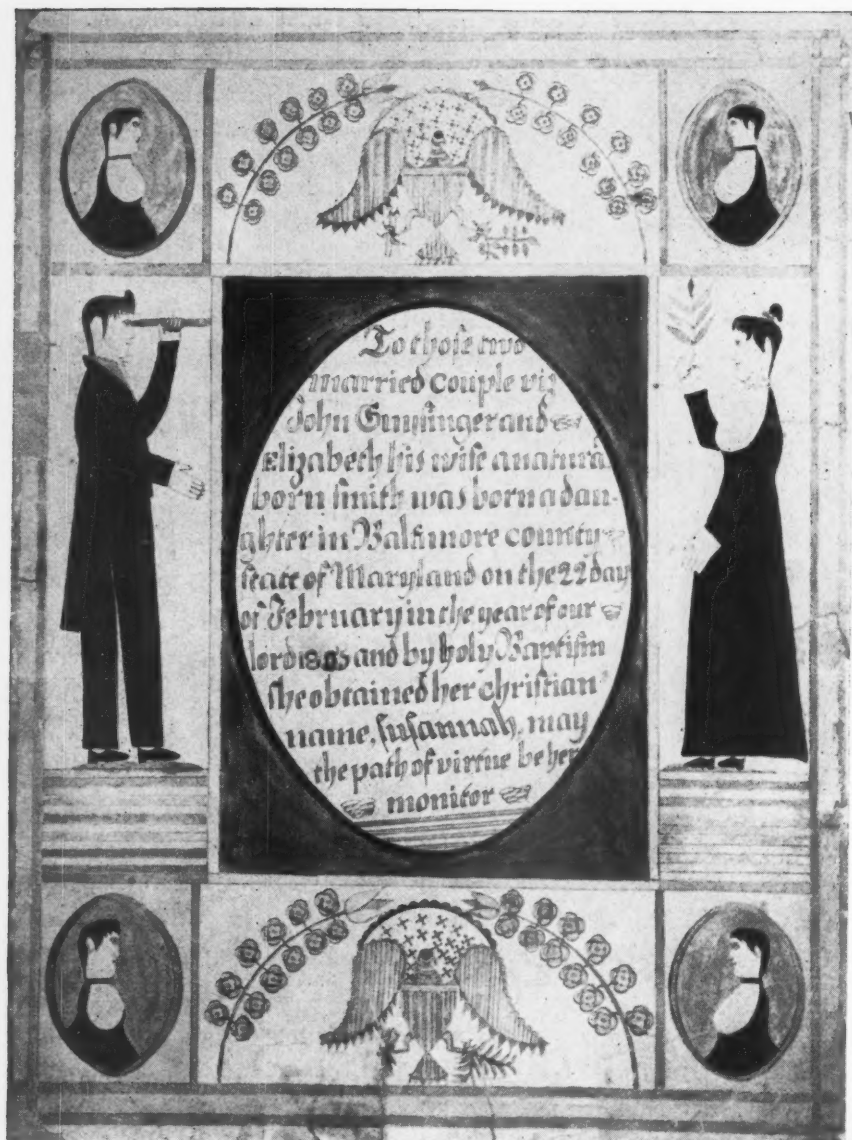 To those two
married couple viz
John Gunsinger and
Elizabeth his wife a natural
born smith was born a dau-
ghter in Baltimore county
state of Maryland on the 22 day
of February in the year of our
lord and by holy Baptism
she obtained her christian
name, susannah, may
the path of virtue be her
monitor